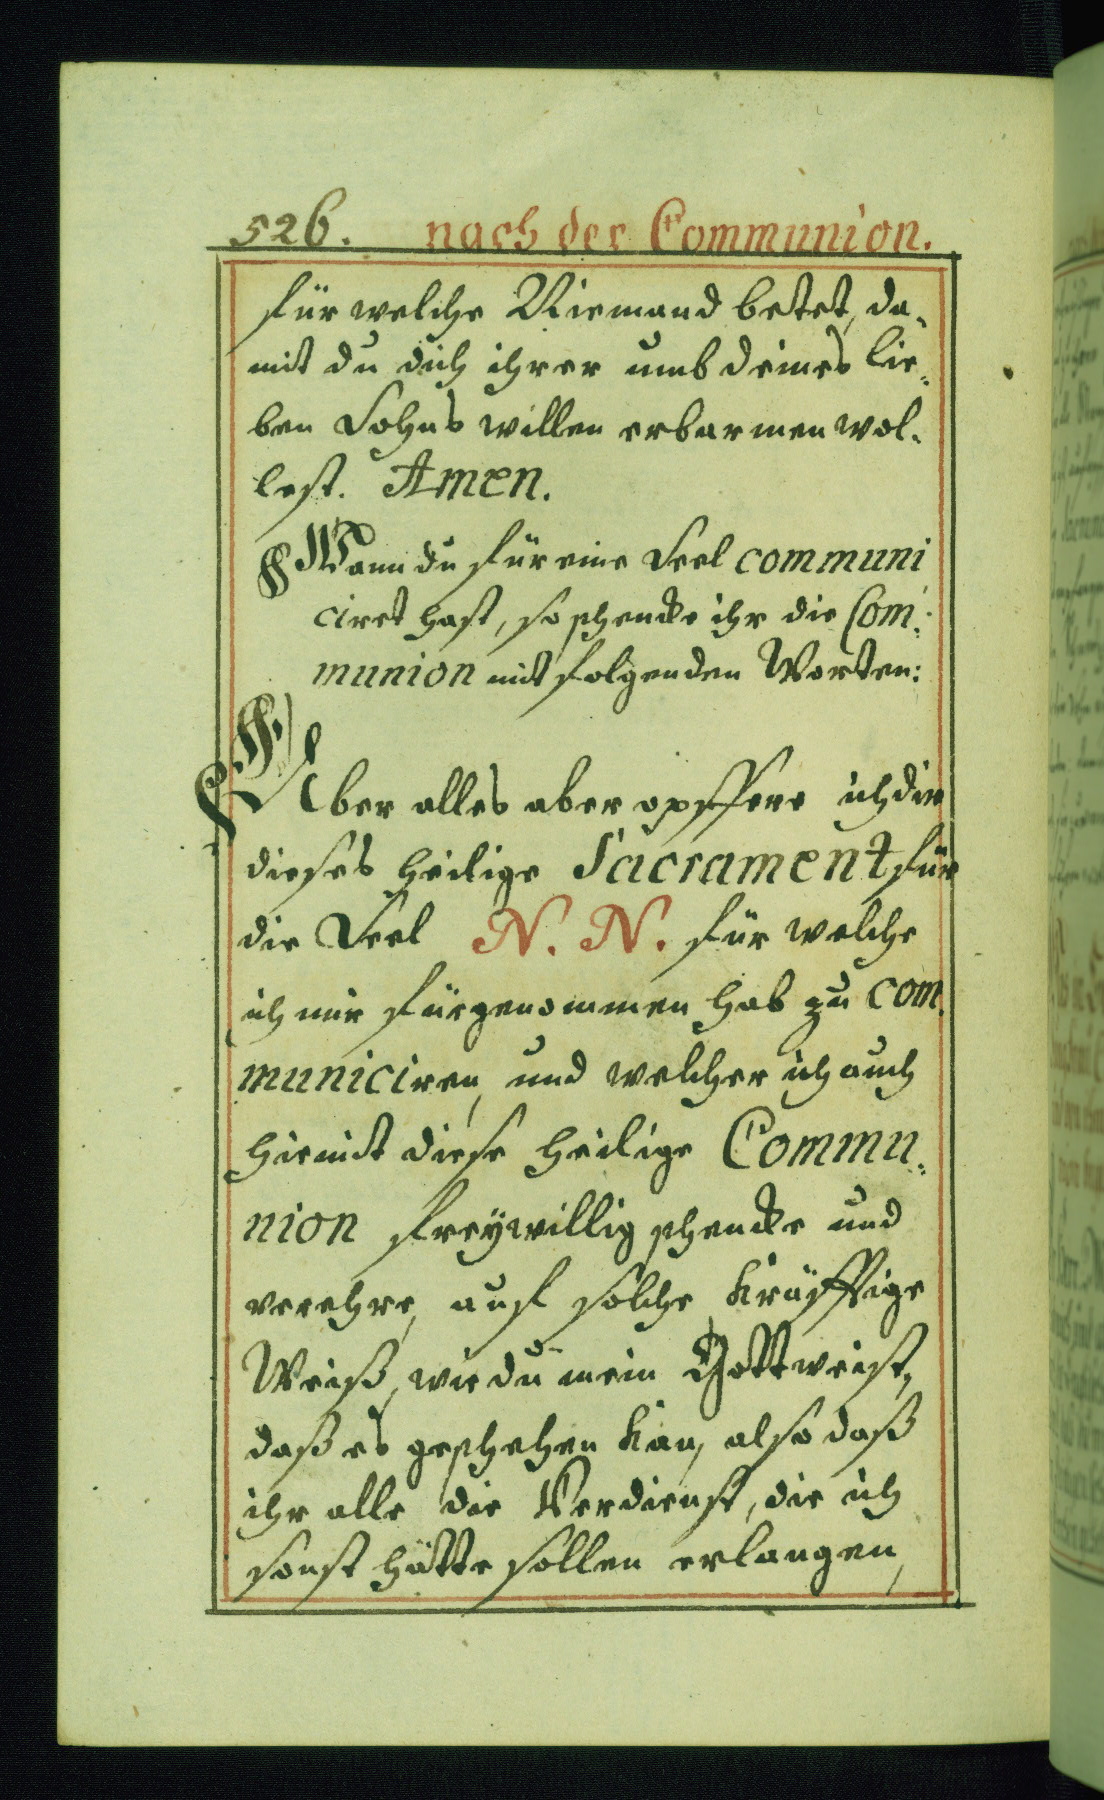 526. nach der Communion.
für welche Niemand betet, da-
mit du dich ihrer umb deines lie-
ben Sohns willen erbarmen wol-
lest. Amen.
Wann du für eine Seel communi
ciret hast, so schencke ihr die Com-
munion mit folgenden Worten:
Uber alles aber opffere ich dir
dieses heilige Sacrament für
die Seel N. N. für welche
ich mir fürgenommen hab zu com-
municiren, und welcher ich auch
hiemit diese heilige Commu-
nion freÿwillig schencke und
verehre, auf solche kräfftige
Weiß, wie du mein Gott weist,
daß es geschehen kan, also daß
ihr alle die Verdienst, die ich
sonst hätte sollen erlangen,